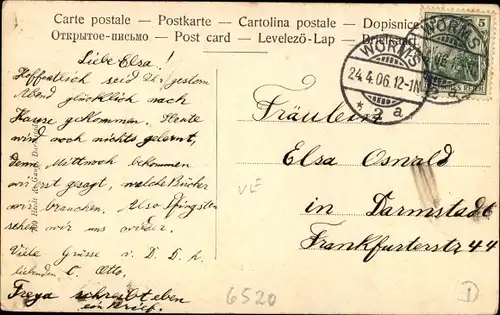 Carte postale – Postkarte – Cartolina postale – Dopisnice
Открытое-письмо – Post card – Levelező-Lap –
WORMS
24.4.06.12-1N
* 2 a
WORMS
5
Liebe Elsa!
Hoffentlich seid Ihr gestern
Abend glücklich nach
Hause gekommen. Heute
wird noch nichts gelernt,
denn Mittwoch bekommen
wir erst gesagt, welche Bücher
wir brauchen. Also Pfingsten
sehen wir uns wieder.
Viele Grüsse v. D. D. h.
liebenden C. Otto.
Freya schreibt eben
ein Brief.
Fräulein
Elsa Oswald
in Darmstadt
Frankfurterstr 44
VE
6520
D